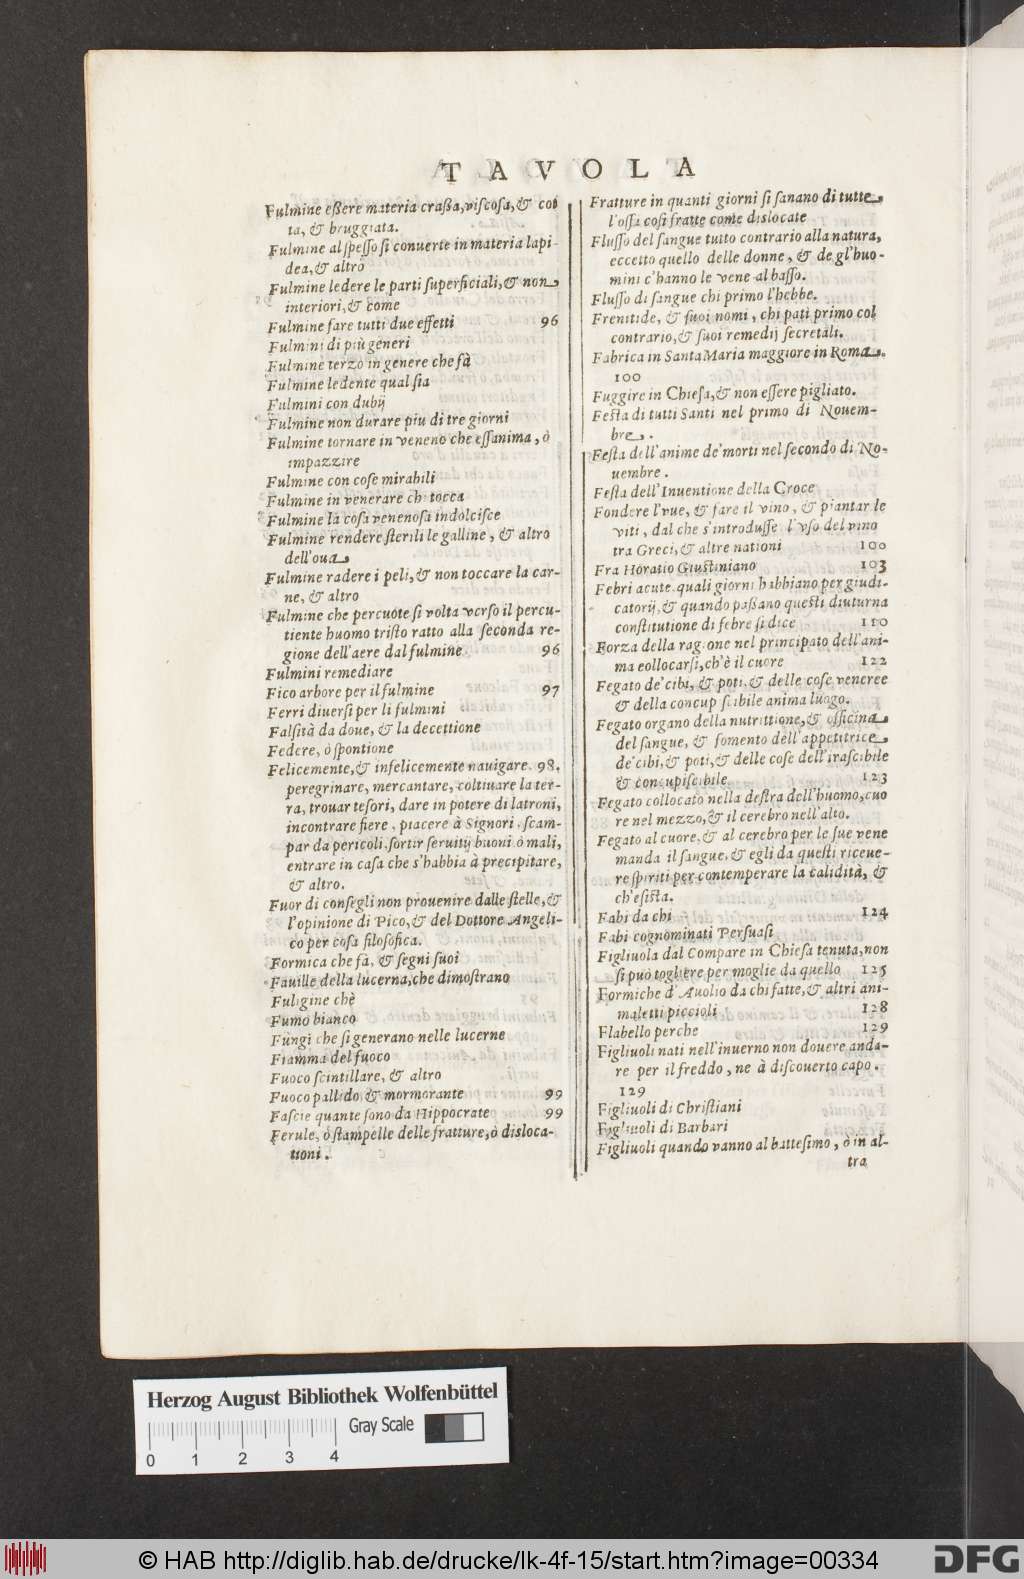 TAVOLA
Fulmine eßere materia craßa, viscosa, & cot
ta, & bruggiata.
Fulmine al spesso si conuerte in materia lapi-
dea, & altro
Fulmine ledere le parti superficiali, & non
interiori, & come
Fulmine fare tutti due effetti 96
Fulmini di più generi
Fulmine terzo in genere che fà
Fulmine ledente qual sia
Fulmini con dubij
Fulmine non durare piu di tre giorni
Fulmine tornare in veneno che essanima, ò
impazzire
Fulmine con cose mirabili
Fulmine in venerare chi tocca
Fulmine la cosa venenosa indolcisce
Fulmine rendere sterili le galline, & altro
dell'oua
Fulmine radere i peli, & non toccare la car-
ne, & altro
Fulmine che percuote si volta verso il percu-
tiente huomo tristo ratto alla seconda re-
gione dell'aere dal fulmine 96
Fulmini remediare
Fico arbore per il fulmine 97
Ferri diuersi per li fulmini
Falsità da doue, & la decettione
Federe, ò spontione
Felicemente, & infelicemente nauigare. 98.
peregrinare, mercantare, coltiuare la ter-
ra, trouar tesori, dare in potere di latroni,
incontrare fiere, piacere à Signori, scam-
par da pericoli. sortir seruitij buoni ò mali,
entrare in casa che s'habbia à precipitare,
& altro.
Fuor di consegli non prouenire dalle stelle, &
l'opinione di Pico, & del Dottore Angeli-
co per cosa filosofica.
Formica che fà, & segni suoi
Fauille della lucerna, che dimostrano
Fuligine chè
Fumo bianco
Fungi che si generano nelle lucerne
Fiamma del fuoco
Fuoco scintillare, & altro
Fuoco pallido, & mormorante 99
Fascie quante sono da Hippocrate 99
Ferule, ò stampelle delle fratture, ò disloca-
tioni.
Fratture in quanti giorni si sanano di tutte
l'ossa cosi fratte come dislocate
Flusso del sangue tutto contrario alla natura,
eccetto quello delle donne, & de gl'huo-
mini c'hanno le vene al basso.
Flusso di sangue chi primo l'hebbe.
Frenitide, & suoi nomi, chi pati primo col
contrario, & suoi remedij secretali.
Fabrica in Santa Maria maggiore in Roma.
100
Fuggire in Chiesa, & non essere pigliato.
Festa di tutti Santi nel primo di Nouem-
bre.
Festa dell'anime de' morti nel secondo di No-
uembre.
Festa dell'Inuentione della Croce
Fondere l'vue, & fare il vino, & piantar le
viti, dal che s'introdusse l'vso del vino
tra Greci, & altre nationi 100
Fra Horatio Giustiniano 103
Febri acute quali giorni habbiano per giudi-
catorij, & quando paßano questi diuturna
constitutione di febre si dice 110
Forza della ragione nel principato dell'ani-
ma eollocarsi, ch'è il cuore 122
Fegato de' cibi, & poti, & delle cose veneree
& della concupiscibile anima luogo.
Fegato organo della nutrittione, & officina
del sangue, & fomento dell'appetitrice
de' cibi, & poti, & delle cose dell'irascibile
& concupiscibile 123
Fegato collocato nella destra dell'huomo, cuo
re nel mezzo, & il cerebro nell'alto.
Fegato al cuore, & al cerebro per le sue vene
manda il sangue, & egli da questi riceue-
re spiriti per contemperare la calidità, &
ch'esista.
Fabi da chi 124
Fabi cognominati Persuasi
Figliuola dal Compare in Chiesa tenuta, non
si può togliere per moglie da quello 125
Formiche d'Auolio da chi fatte, & altri ani-
maletti piccioli 128
Flabello perche 129
Figliuoli nati nell'inuerno non douere anda-
re per il freddo, ne à discouerto capo.
129
Figliuoli di Christiani
Figliuoli di Barbari
Figliuoli quando vanno al battesimo, ò in al-
tra
Herzog August Bibliothek Wolfenbüttel
Gray Scale
0 1 2 3 4
© HAB http://diglib.hab.de/drucke/lk-4f-15/start.htm?image=00334
DFG